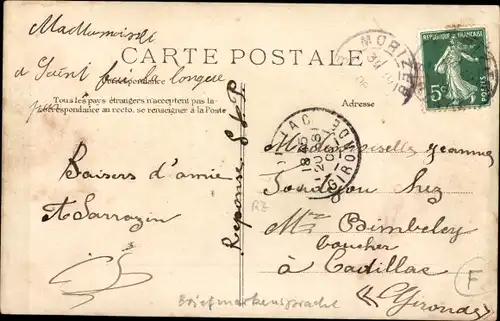 Mademoiselle
CARTE POSTALE
RÉPUBLIQUE FRANÇAISE
5c
POSTES
MORIZÈS
Correspondance
Tous les pays étrangers n'acceptent pas la
correspondance au recto. se renseigner à la Poste
Adresse
Baisers d'amie
A Sarrazin
Réponse S V P
GIRONDE
Mademoiselle Jeanne
chez
Mr Bimbeley
boucher
à Cadillac
(Gironde)
RZ
F
Briefmarkensprache